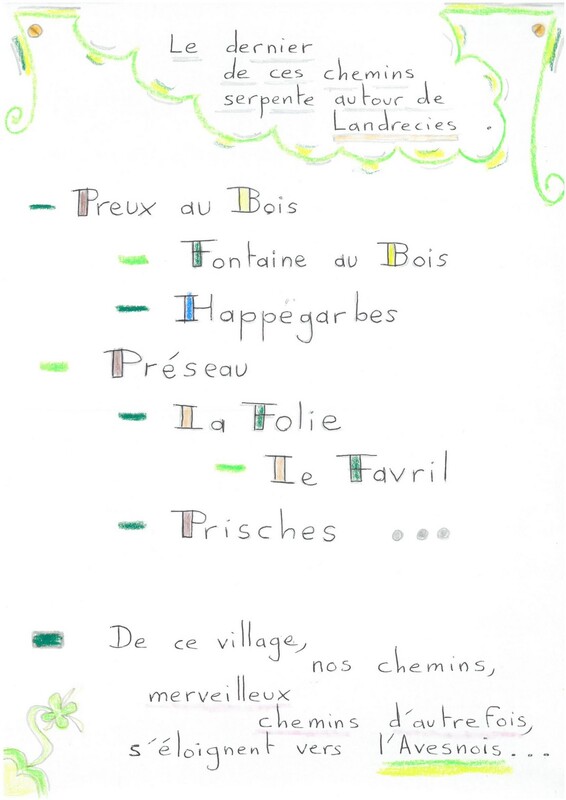 Le dernier
de ces chemins
serpente autour de
Landrecies .
- Preux au Bois
- Fontaine au Bois
- Happëgarbes
- Préseau
- La Folie
- Le Favril
- Prisches ...
- De ce village,
nos chemins,
merveilleux
chemins d'autrefois,
s'éloignent vers l'Avesnois...